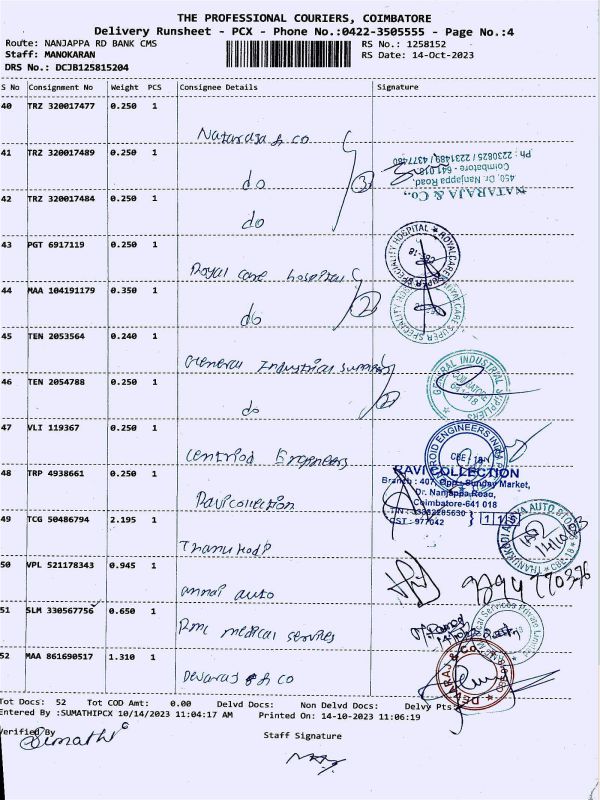 THE PROFESSIONAL COURIERS, COIMBATORE
Delivery Runsheet - PCX - Phone No.:0422-3505555 - Page No.:4
Route: NANJAPPA RD BANK CMS
RS No.: 1258152
Staff: MANOKARAN
RS Date: 14-Oct-2023
DRS No.: DCJB125815204
S No Consignment No Weight PCS Consignee Details Signature
40 TRZ 320017477 0.250 1
Nataraja & co
41 TRZ 320017489 0.250 1
do
3
NATARAJA & Co.,
450, Dr. Nanjappa Road,
Coimbatore - 641 018
Ph : 2230825 / 2231489 / 4377480
42 TRZ 320017484 0.250 1
do
43 PGT 6917119 0.250 1
Royal care hospital
ROYALCARE SUPER SPECIALITY HOSPITAL
CBE-18
44 MAA 104191179 0.350 1
do
2
ROYALCARE SUPER SPECIALITY HOSPITAL
45 TEN 2053564 0.240 1
General Industrial
GENERAL INDUSTRIAL SUPPLIERS
COIMBATORE
641018
46 TEN 2054788 0.250 1
do
2
47 VLI 119367 0.250 1
Engineers
CBE - 18
48 TRP 4938661 0.250 1
Ravi collection
RAVI COLLECTION
Branch : 407, Opp. Sunday Market,
Dr. Nanjappa Road,
Coimbatore-641 018
CST : 977042
115
49 TCG 50486794 2.195 1
CBE-18
14/10/23
50 VPL 521178343 0.945 1
annai auto
51 SLM 330567756 0.650 1
Rmc medical services
Medical Services Private Limited
52 MAA 861690517 1.310 1
Devaraj & co
DEVARAJ & Co.
Tot Docs: 52 Tot COD Amt: 0.00 Delvd Docs: Non Delvd Docs: Delvy Pts
Entered By :SUMATHIPCX 10/14/2023 11:04:17 AM Printed On: 14-10-2023 11:06:19
Verified By
Sumathi
Staff Signature